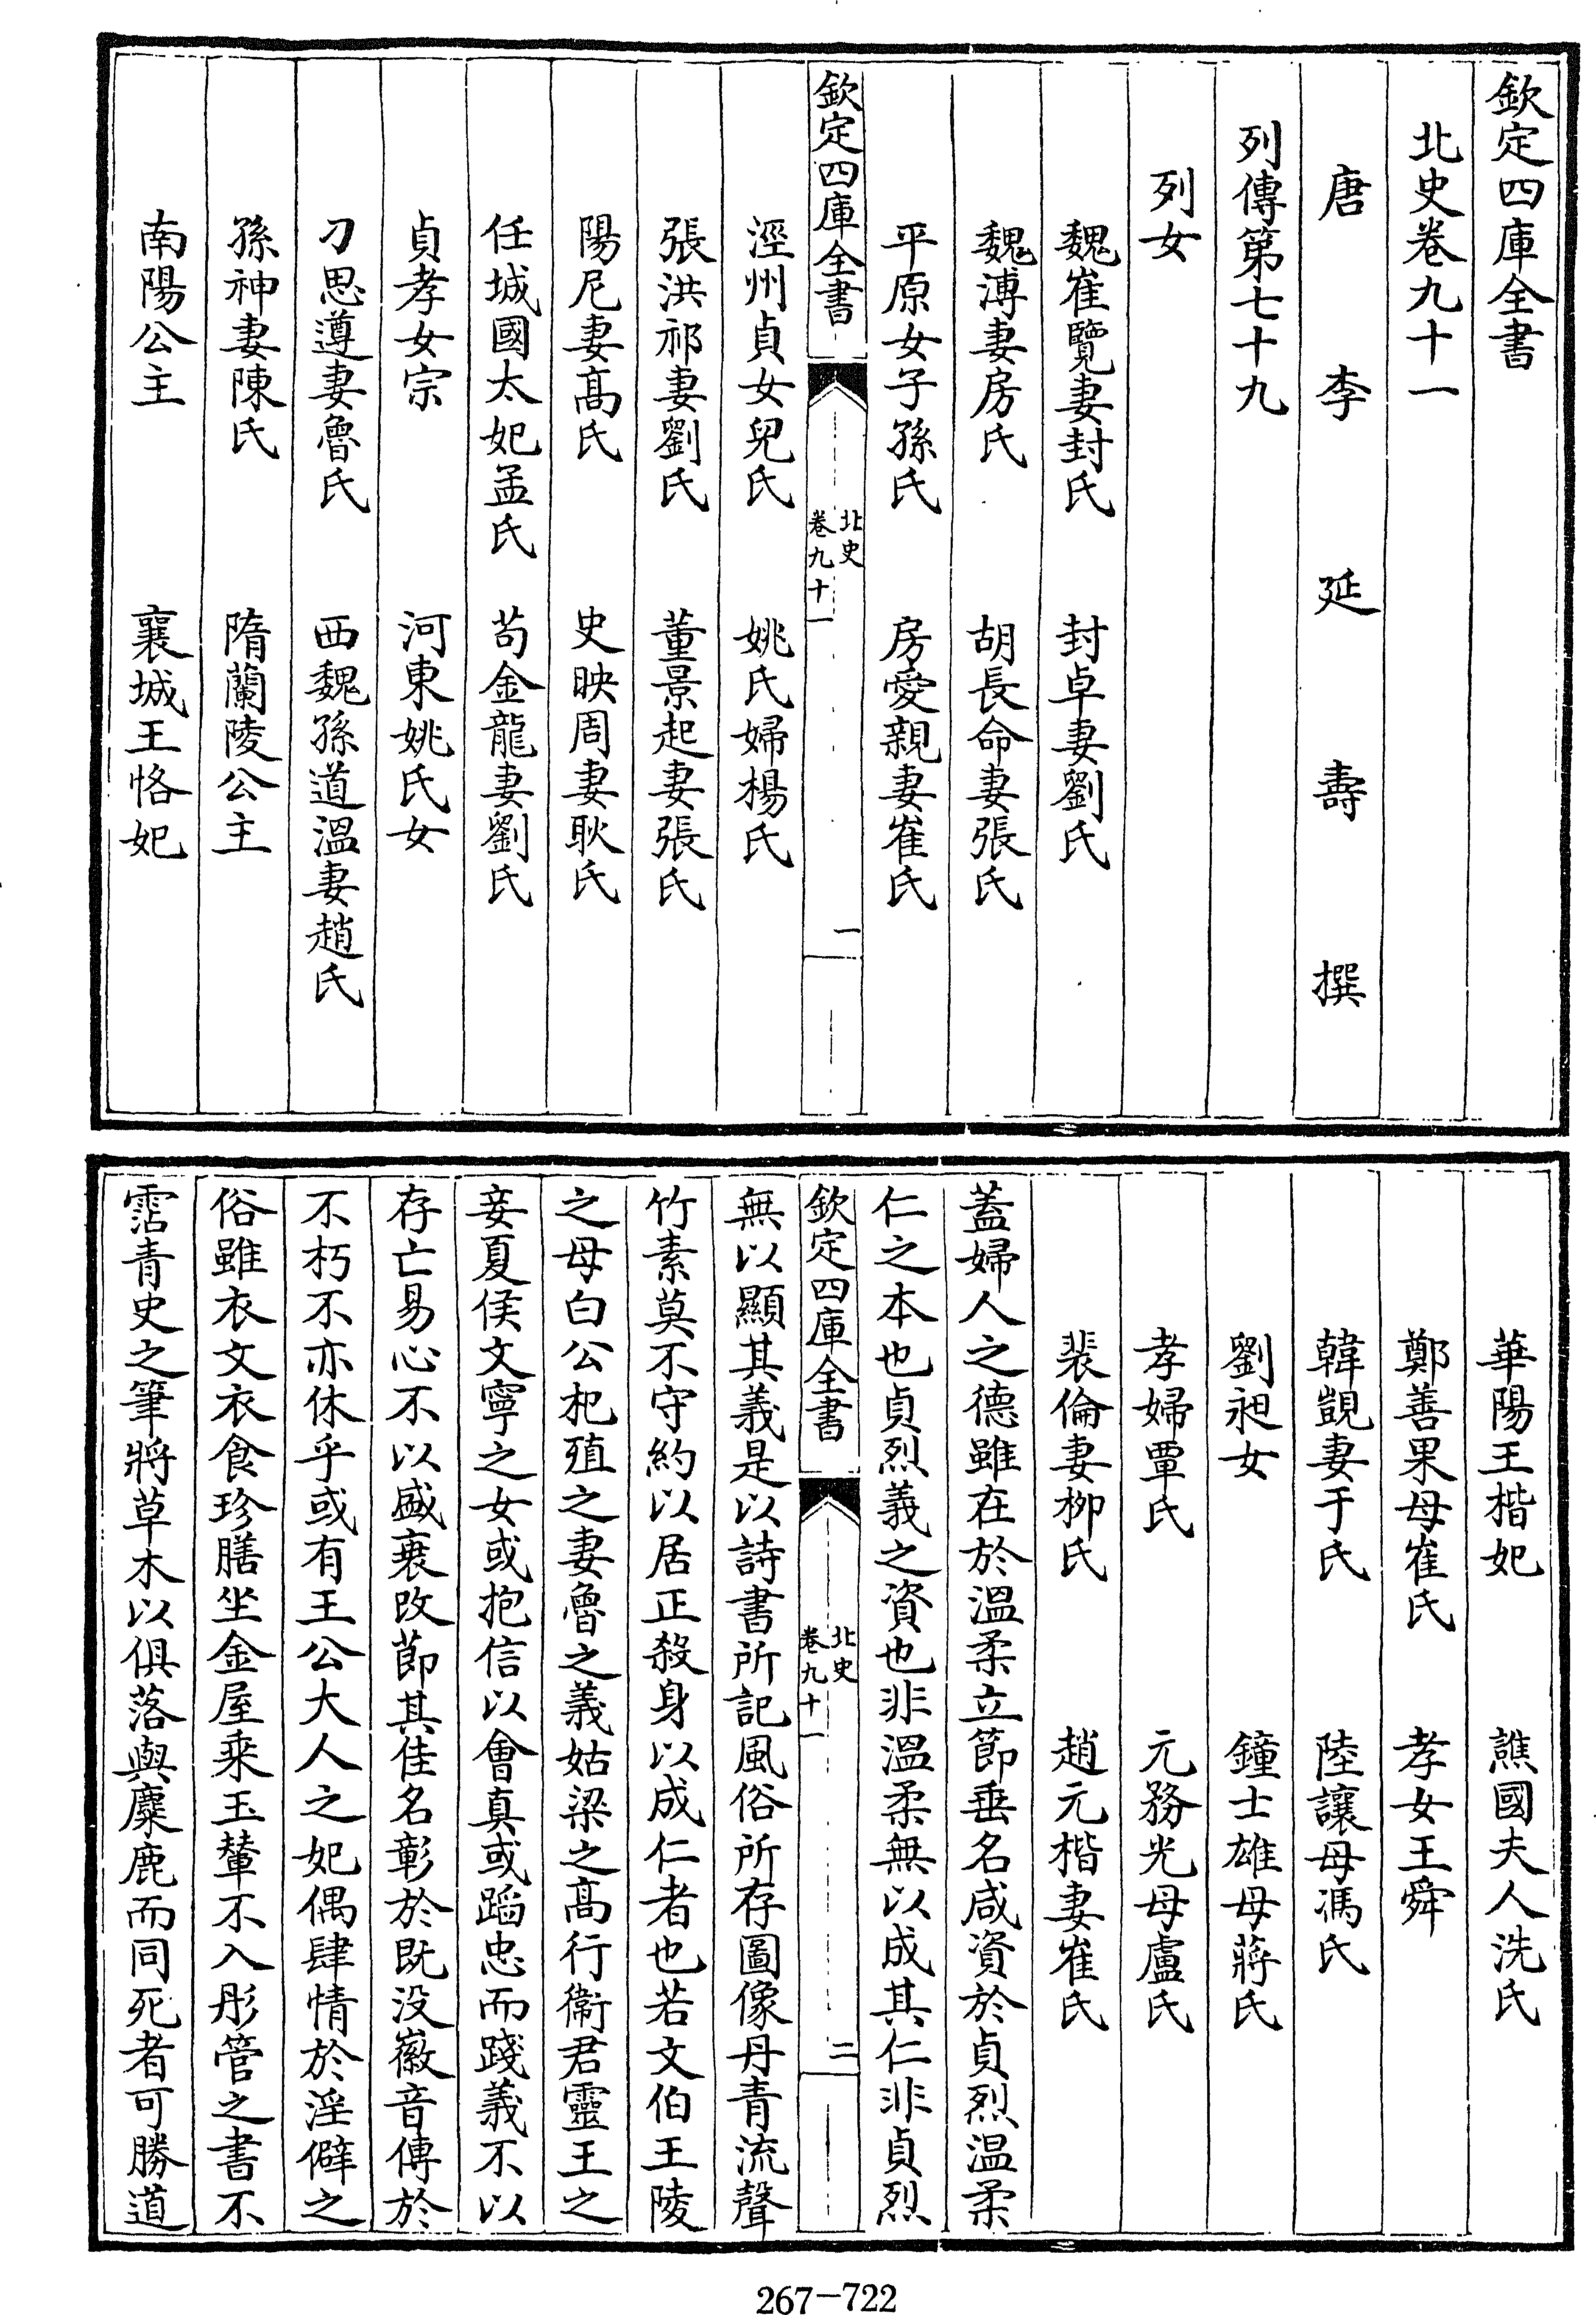 欽定四庫全書
北史卷九十一
唐 李 延 壽 撰
列傳第七十九
列女
魏崔覽妻封氏 封卓妻劉氏
魏溥妻房氏 胡長命妻張氏
平原女子孫氏 房愛親妻崔氏
欽定四庫全書 北史 卷九十一 一
涇州貞女兒氏 姚氏婦楊氏
張洪祁妻劉氏 董景起妻張氏
陽尼妻高氏 史映周妻耿氏
任城國太妃孟氏 苟金龍妻劉氏
貞孝女宗 河東姚氏女
刁思遵妻魯氏 西魏孫道溫妻趙氏
孫神妻陳氏 隋蘭陵公主
南陽公主 襄城王恪妃
華陽王楷妃 譙國夫人洗氏
鄭善果母崔氏 孝女王舜
韓覬妻于氏 陸讓母馮氏
劉昶女 鐘士雄母蔣氏
孝婦覃氏 元務光母盧氏
裴倫妻柳氏 趙元楷妻崔氏
蓋婦人之德雖在於溫柔立節垂名咸資於貞烈溫柔
仁之本也貞烈義之資也非溫柔無以成其仁非貞烈
欽定四庫全書 北史 卷九十一 二
無以顯其義是以詩書所記風俗所存圖像丹青流聲
竹素莫不守約以居正殺身以成仁者也若文伯王陵
之母白公杞殖之妻魯之義姑梁之高行衛君靈王之
妾夏侯文寧之女或抱信以會真或蹈忠而踐義不以
存亡易心不以盛衰改節其佳名彰於既沒徽音傳於
不朽不亦休乎或有王公大人之妃偶肆情於淫僻之
俗雖衣文衣食珍膳坐金屋乘玉輦不入彤管之書不
霑青史之筆將草木以俱落與麋鹿而同死者可勝道
267-722